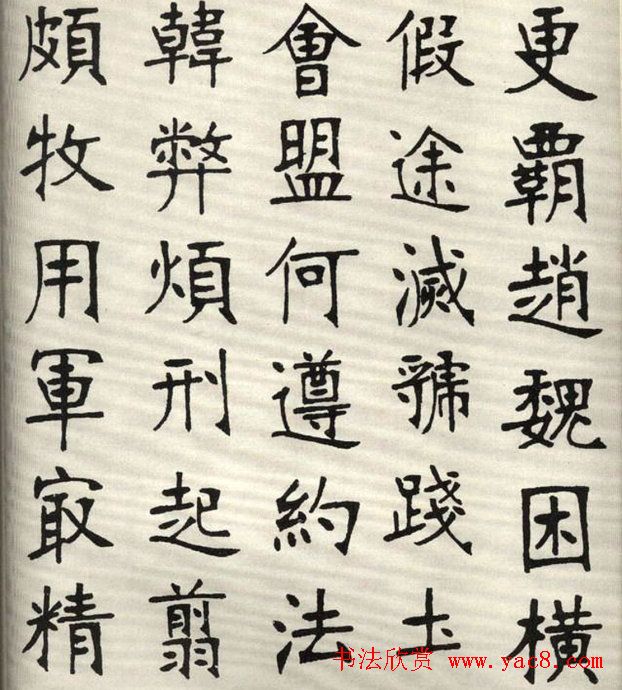 更霸趙魏困橫
假途滅虢踐土
會盟何遵約法
韓弊煩刑起翦
頗牧用軍最精
书法欣赏 www.yac8.com